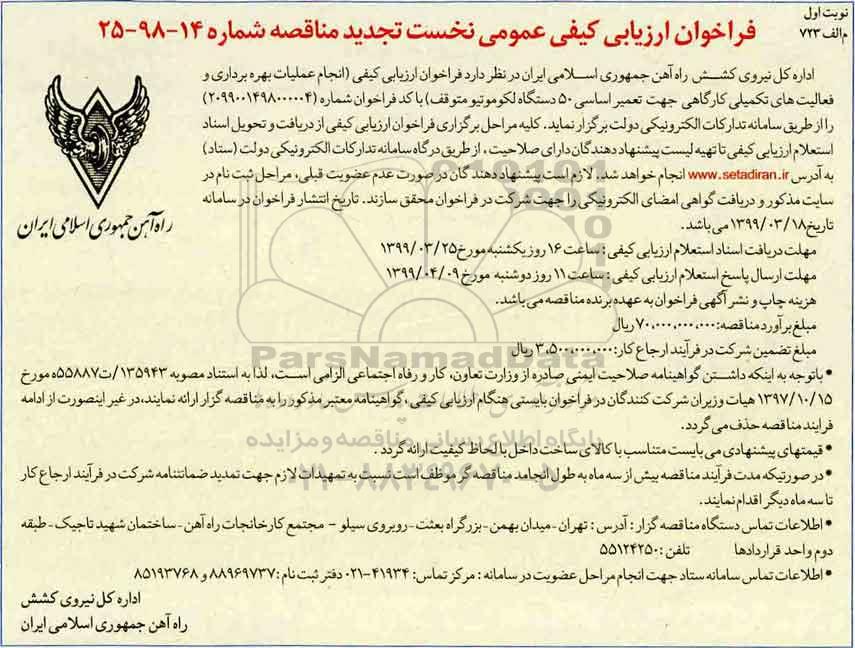 نوبت اول
م الف ۷۲۳
فراخوان ارزیابی کیفی عمومی نخست تجدید مناقصه شماره ۱۴-۹۸-۲۵
اداره کل نیروی کشش راه آهن جمهوری اسلامی ایران در نظر دارد فراخوان ارزیابی کیفی (انجام عملیات بهره برداری و
فعالیت های تکمیلی کارگاهی جهت تعمیر اساسی ۵۰ دستگاه لکوموتیو متوقف) با کد فراخوان شماره (۲۰۹۹۰۰۱۴۹۸۰۰۰۰۰۴)
را از طریق سامانه تدارکات الکترونیکی دولت برگزار نماید. کلیه مراحل برگزاری فراخوان ارزیابی کیفی از دریافت و تحویل اسناد
استعلام ارزیابی کیفی تا تهیه لیست پیشنهاد دهندگان دارای صلاحیت، از طریق درگاه سامانه تدارکات الکترونیکی دولت (ستاد)
به آدرس www.setadiran.ir انجام خواهد شد. لازم است پیشنهاد دهندگان در صورت عدم عضویت قبلی، مراحل ثبت نام در
سایت مذکور و دریافت گواهی امضای الکترونیکی را جهت شرکت در فراخوان محقق سازند. تاریخ انتشار فراخوان در سامانه
تاریخ ۱۳۹۹/۰۳/۱۸ می باشد.
راه آهن جمهوری اسلامی ایران
مهلت دریافت اسناد استعلام ارزیابی کیفی: ساعت ۱۶ روز یکشنبه مورخ ۱۳۹۹/۰۳/۲۵
مهلت ارسال پاسخ استعلام ارزیابی کیفی: ساعت ۱۱ روز دوشنبه مورخ ۱۳۹۹/۰۴/۰۹
هزینه چاپ و نشر آگهی فراخوان به عهده برنده مناقصه می باشد.
مبلغ برآورد مناقصه: ۷۰،۰۰۰،۰۰۰،۰۰۰ ریال
مبلغ تضمین شرکت در فرآیند ارجاع کار: ۳،۵۰۰،۰۰۰،۰۰۰ ریال
ParsNamadData
• با توجه به اینکه داشتن گواهینامه صلاحیت ایمنی صادره از وزارت تعاون، کار و رفاه اجتماعی الزامی است، لذا به استناد مصوبه ۱۳۵۹۴۳/ت۵۵۸۸۷ه مورخ
۱۳۹۷/۱۰/۱۵ هیات وزیران شرکت کنندگان در فراخوان بایستی هنگام ارزیابی کیفی، گواهینامه معتبر مذکور را به مناقصه گزار ارائه نمایند، در غیر اینصورت از ادامه
فرایند مناقصه حذف می گردد.
پایگاه اطلاع رسانی مناقصه و مزایده
• قیمتهای پیشنهادی می بایست متناسب با کالای ساخت داخل با لحاظ کیفیت ارائه گردد.
• در صورتیکه مدت فرآیند مناقصه بیش از سه ماه به طول انجامد مناقصه گر موظف است نسبت به تمهیدات لازم جهت تمدید ضمانتنامه شرکت در فرآیند ارجاع کار
تا سه ماه دیگر اقدام نمایند.
• اطلاعات تماس دستگاه مناقصه گزار: آدرس: تهران - میدان بهمن - بزرگراه بعثت - روبروی سیلو - مجتمع کارخانجات راه آهن - ساختمان شهید تاجیک - طبقه
دوم واحد قراردادها تلفن: ۵۵۱۲۴۲۵۰
• اطلاعات تماس سامانه ستاد جهت انجام مراحل عضویت در سامانه: مرکز تماس: ۴۱۹۳۴-۰۲۱ دفتر ثبت نام: ۸۸۹۶۹۷۳۷ و ۸۵۱۹۳۷۶۸
اداره کل نیروی کشش
راه آهن جمهوری اسلامی ایران